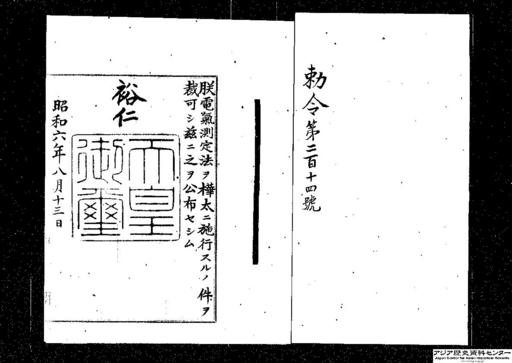 勅令第二百十四號
朕電氣測定法ヲ樺太ニ施行スルノ件ヲ
裁可シ茲ニ之ヲ公布セシム
裕仁
天皇
御璽
昭和六年八月十三日
アジア歴史資料センター
Japan Center for Asian Historical Records